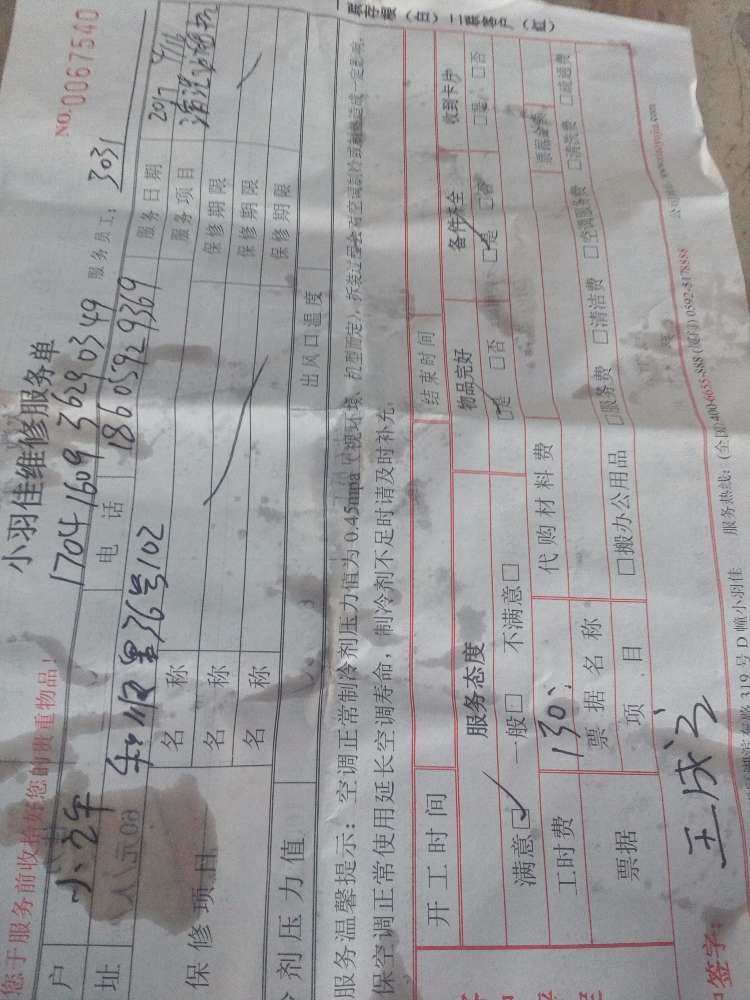 一联存根（白） 二联客户（红）
小羽佳维修服务单
NO.0067540
您于服务前收拾好您的贵重物品！
1704 1609 3629 0349 服务员工：3031
户 电话 18605929369 服务日期 2017
址 36号102 服务项目
保修项目 名称 保修期限
名称 保修期限
名称 保修期限
剂压力值 出风口温度
服务温馨提示：空调正常制冷剂压力值为0.45mpa（视环境、机型而定），
保空调正常使用延长空调寿命，制冷剂不足时请及时补充。
开工时间 结束时间
服务态度 物品完好 备件齐全 收到卡抄
满意☑ 一般□ 不满意□ ☑是 □否 ☑是 □否 □是 □否
工时费 130 代购材料费
票据 票据名称 □服务费 □清洁费 □空调服务费 □清洗费 □疏通费
项目 □搬办公用品
319号D幢小羽佳 服务热线：(全国)400-6655-888 (厦门)0592-8178888
签字：王成